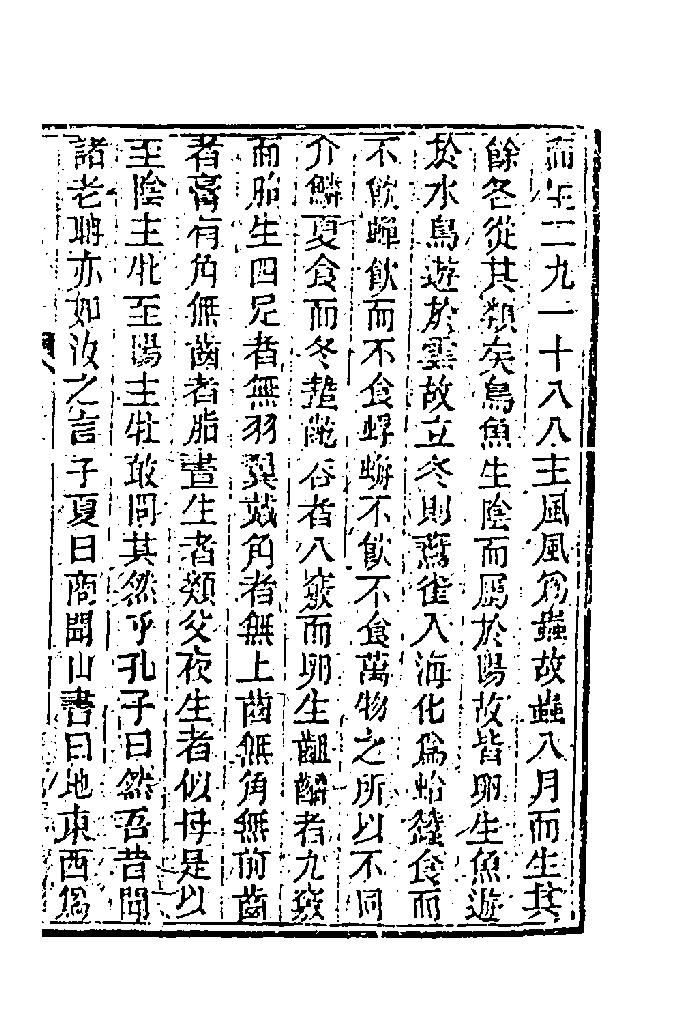 而生二九一十八八主風風爲蟲故蟲八月而生其
餘各從其類矣鳥魚生陰而屬於陽故皆卵生魚遊
於水鳥遊於雲故立冬則燕雀入海化爲蛤蠶食而
不飲蟬飲而不食蜉蝣不飲不食萬物之所以不同
介鱗夏食而冬蟄齕吞者八竅而卵生齟嚼者九竅
而胎生四足者無羽翼戴角者無上齒無角無前齒
者膏有角無齒者脂晝生者類父夜生者似母是以
至陰主牝至陽主牡敢問其然乎孔子曰然吾昔聞
諸老聃亦如汝之言子夏曰商聞山書曰地東西爲